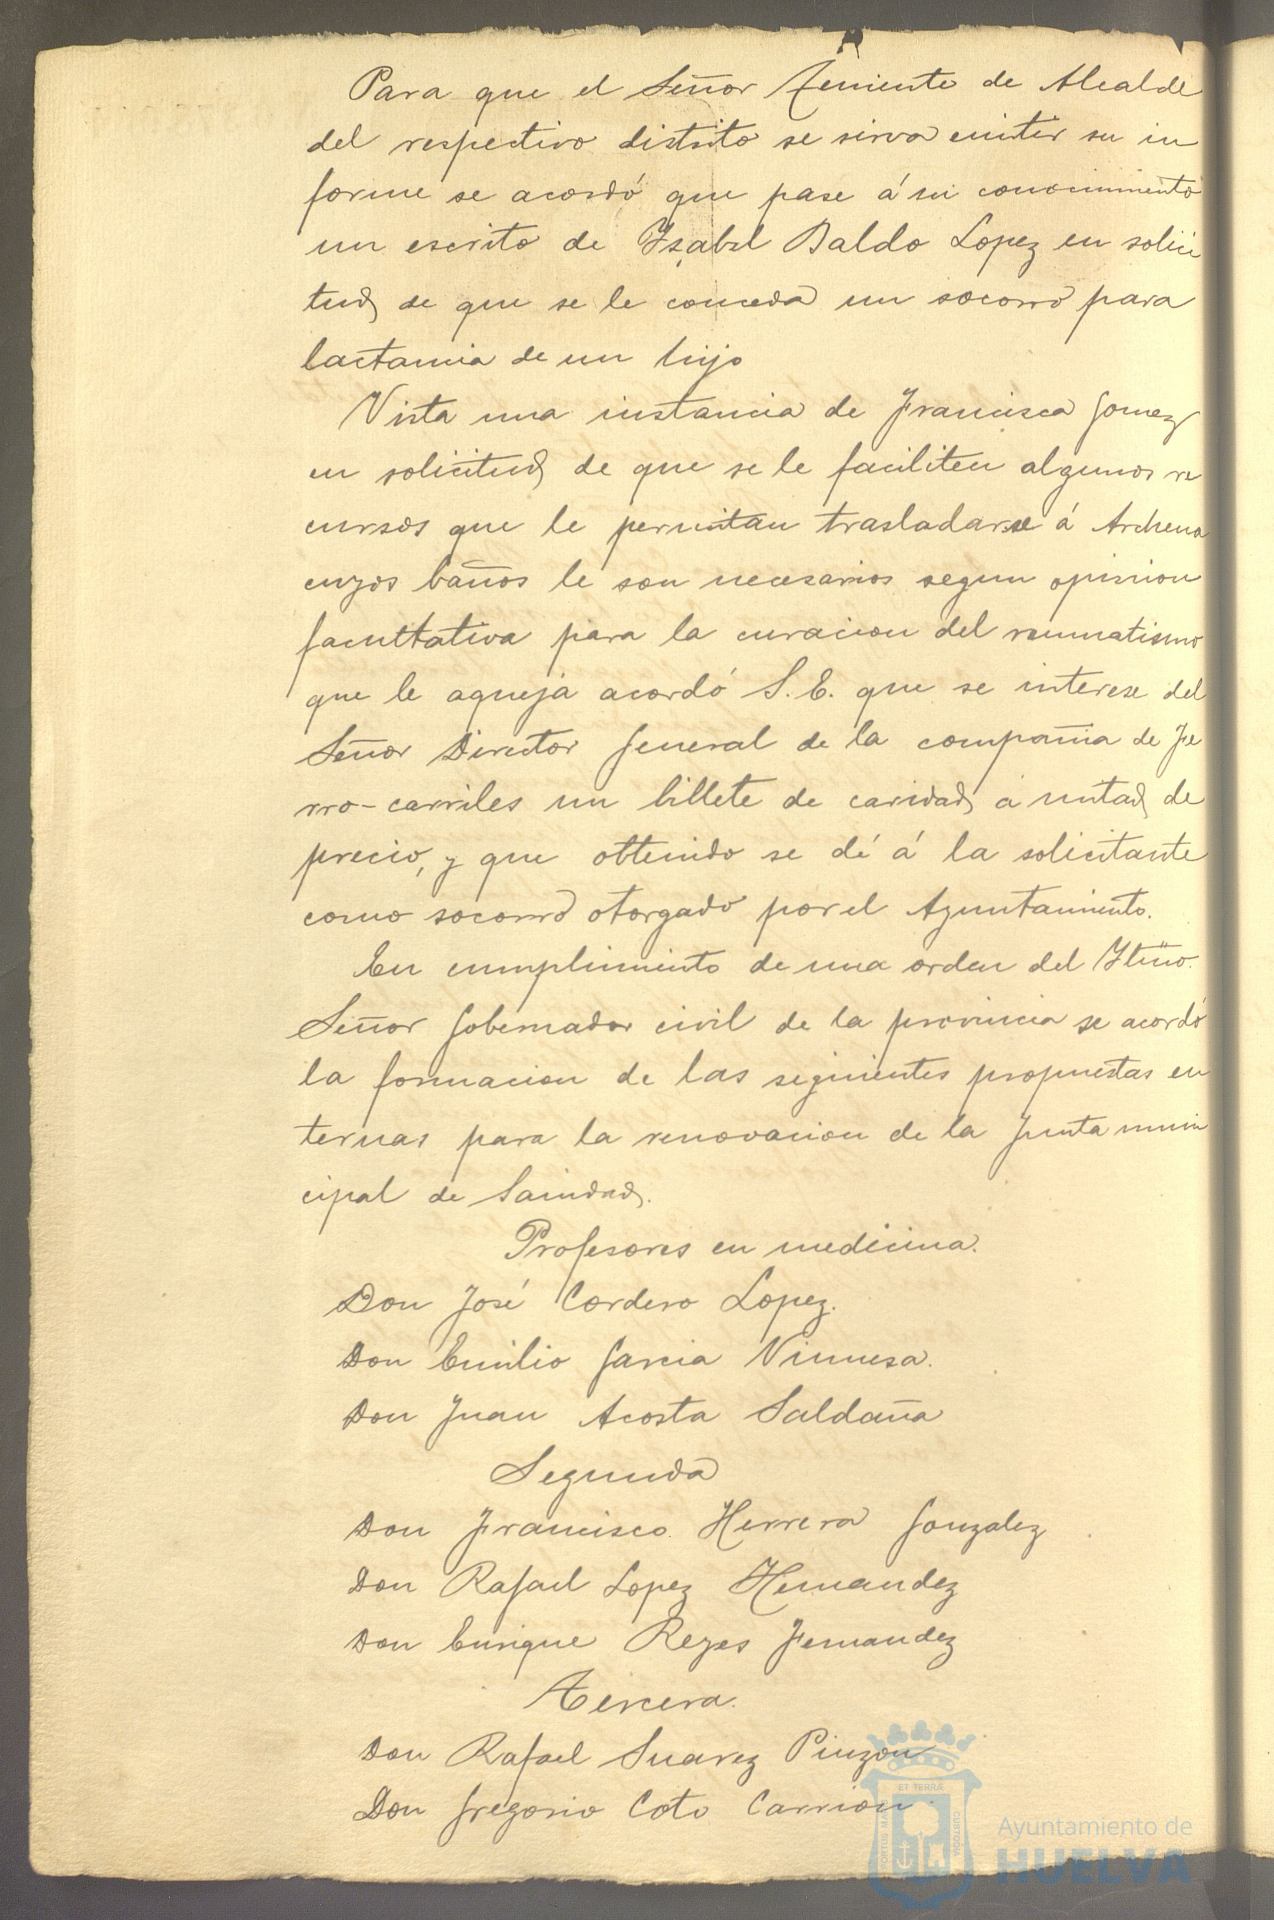 Para que el Señor Teniente de Alcalde
del respectivo distrito se sirva emitir su in
forme se acordó que pase á su conocimiento
un escrito de Ysabel Baldo Lopez en solici
tud de que se le conceda un socorro para
lactancia de un hijo
Vista una instancia de Francisca Gomez
en solicitud de que se le faciliten algunos re
cursos que le permitan trasladarse á Archena
cuyos baños le son necesarios segun opinion
facultativa para la curacion del reumatismo
que le aqueja acordó S. E. que se interese del
Señor Director General de la compañia de Fe
rro-carriles un billete de caridad á mitad de
precio, y que obtenido se dé á la solicitante
como socorro otorgado por el Ayuntamiento.
En cumplimiento de una orden del Yltmo.
Señor Gobernador civil de la provincia se acordó
la formacion de las siguientes propuestas en
ternas para la renovacion de la Junta muni
cipal de Sanidad.
Profesores en medicina.
Don José Cordero Lopez.
Don Emilio Garcia Vinuesa.
Don Juan Acosta Saldaña
Segunda
Don Francisco Herrera Gonzalez
Don Rafael Lopez Hernandez
Don Enrique Reyes Fernandez
Tercera.
Don Rafael Suarez Pinzon
Don Gregorio Coto Carrion
ET TERRÆ
PORTUS MARIS
CUSTODIA
Ayuntamiento de
HUELVA